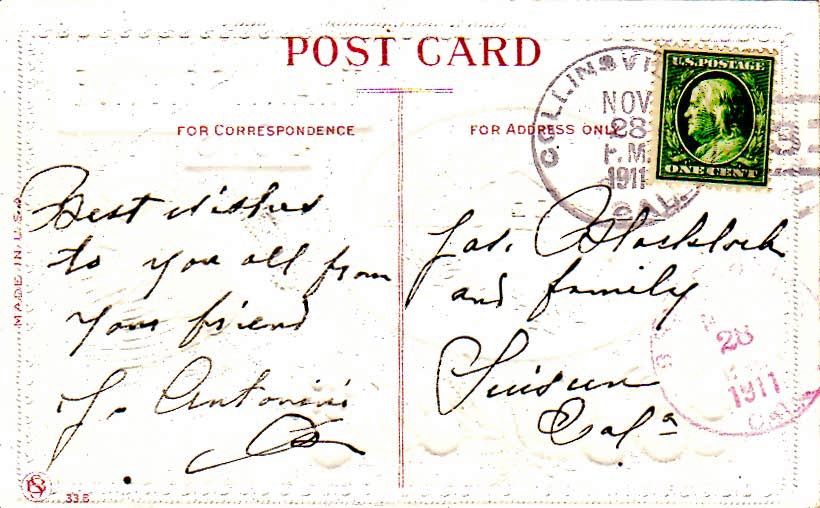 POST CARD
FOR CORRESPONDENCE
FOR ADDRESS ONLY
COLLINSVI
NOV
28
P.M.
1911
CAL.
U.S. POSTAGE
ONE CENT
Best wishes
to you all from
your friend
J. Antonini
Jas. Blacklock
and family
Suisun
Cala
28
1911
CAL
MADE IN U.S.A
33B